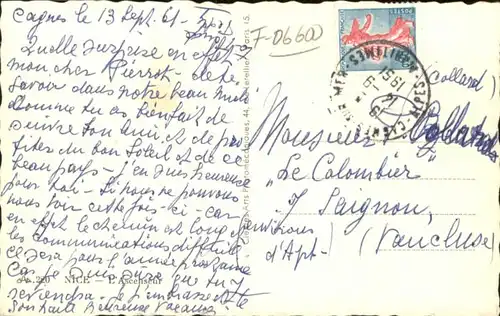 Cagnes le 13 Sept. 61
Quelle surprise en effet
mon cher Pierrot - de te
savoir dans notre beau midi
Comme tu as bien fait de
suivre ton Amie et de pro
fiter du bon soleil et de ce
beau pays - J'en suis heureuse
pour toi - Si nous ne pouvons
nous voir cette fois-ci - car
en effet le chemin est long et
les communications difficiles
ce sera pour l'année prochaine
Car je suis sûre que tu y
reviendra. Je t'embrasse et te
souhaite heureuse vacances
220 NICE - L'Ascenseur
F-0660
POSTES
CAGNES-SUR-MER
ALPES-MARITIMES
1961
(Collard)
Monsieur Collard
"Le Colombier"
à Saignon,
environs
d'Apt-
(Vaucluse)